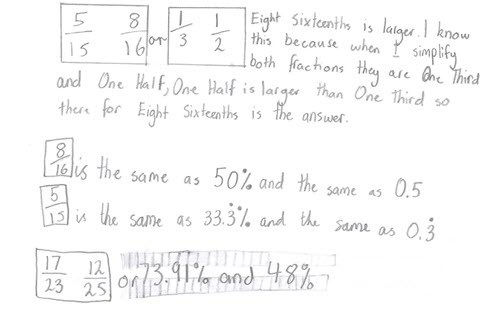 5/15 8/16 or 1/3 1/2 Eight Sixteenths is larger. I know
this because when I simplify
both fractions they are One Third
and One Half, One Half is larger than One Third so
there for Eight Sixteenths is the answer.
8/16 is the same as 50% and the same as 0.5
5/15 is the same as 33.3̇% and the same as 0.3̇
17/23 12/25 or 73.91% and 48%